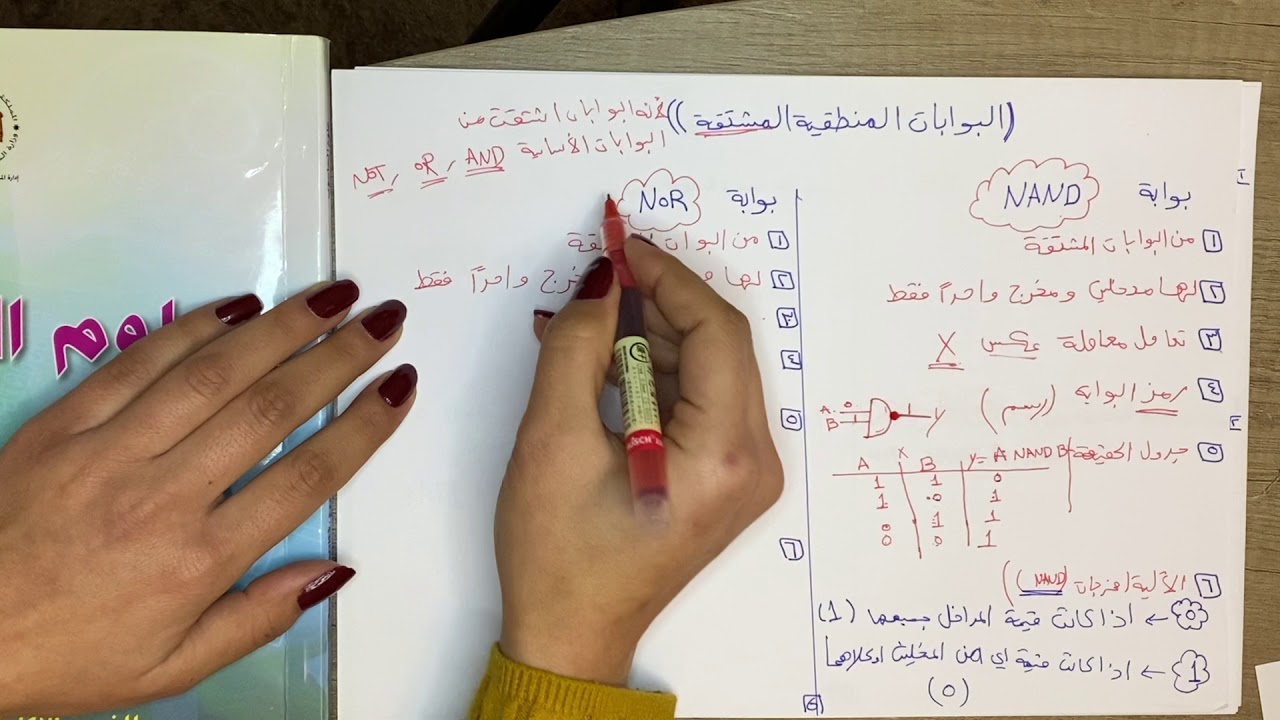 ((البوابات المنطقية المشتقة))
لأنه البوابات اشتقت من
البوابات الأساسية NOT, OR, AND
بوابة NAND
1 من البوابات المشتقة
2 لها مدخلي ومخرج واحداً فقط
3 تعامل معاملة عكس X
4 رمز البوابه (رسم)
A 0
B 1
1 y
5 جدول الحقيقة
A X B y = A NAND B
1 1 0
1 0 1
0 1 1
0 0 1
6 الآلية مخرجات (NAND)
0 ← اذا كانت قيمة المداخل جميعها (1)
1 ← اذا كانت قيمة اي من المدخلين او كلاهما
(0)
بوابة NOR
1 من
2 لها مخرج واحداً فقط
3
4
5
6